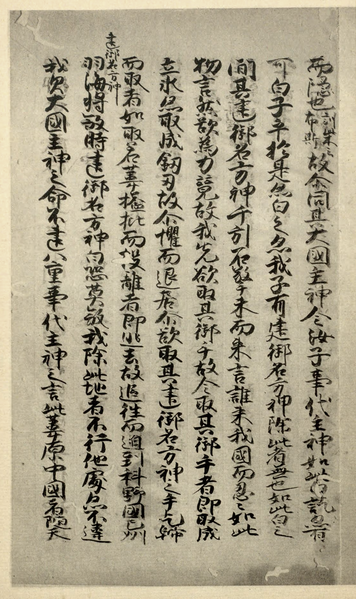 而隱也訓柴云布斯故尓問其大國主神今汝子事代主神如此白訖
可白子乎於是亦白之亦我子有建御名方神除此者無也如此白之
間其建御名方神千引石擎手末而來言誰來我國而忍々如此
物言然欲為力競故我先欲取其御手故令取其御手者即取成
立氷亦取成釼刃故尓懼而退居尓欲取其建御名方神之手乞歸
而取者如取若葦搤批而投離者即逃去故追往而迫到科野國之州
建御名方神
羽海将殺時建御名方神白恐莫殺我除此地者不行他處亦不違
我父大國主神之命不違八重事代主神之言此葦原中國者随天